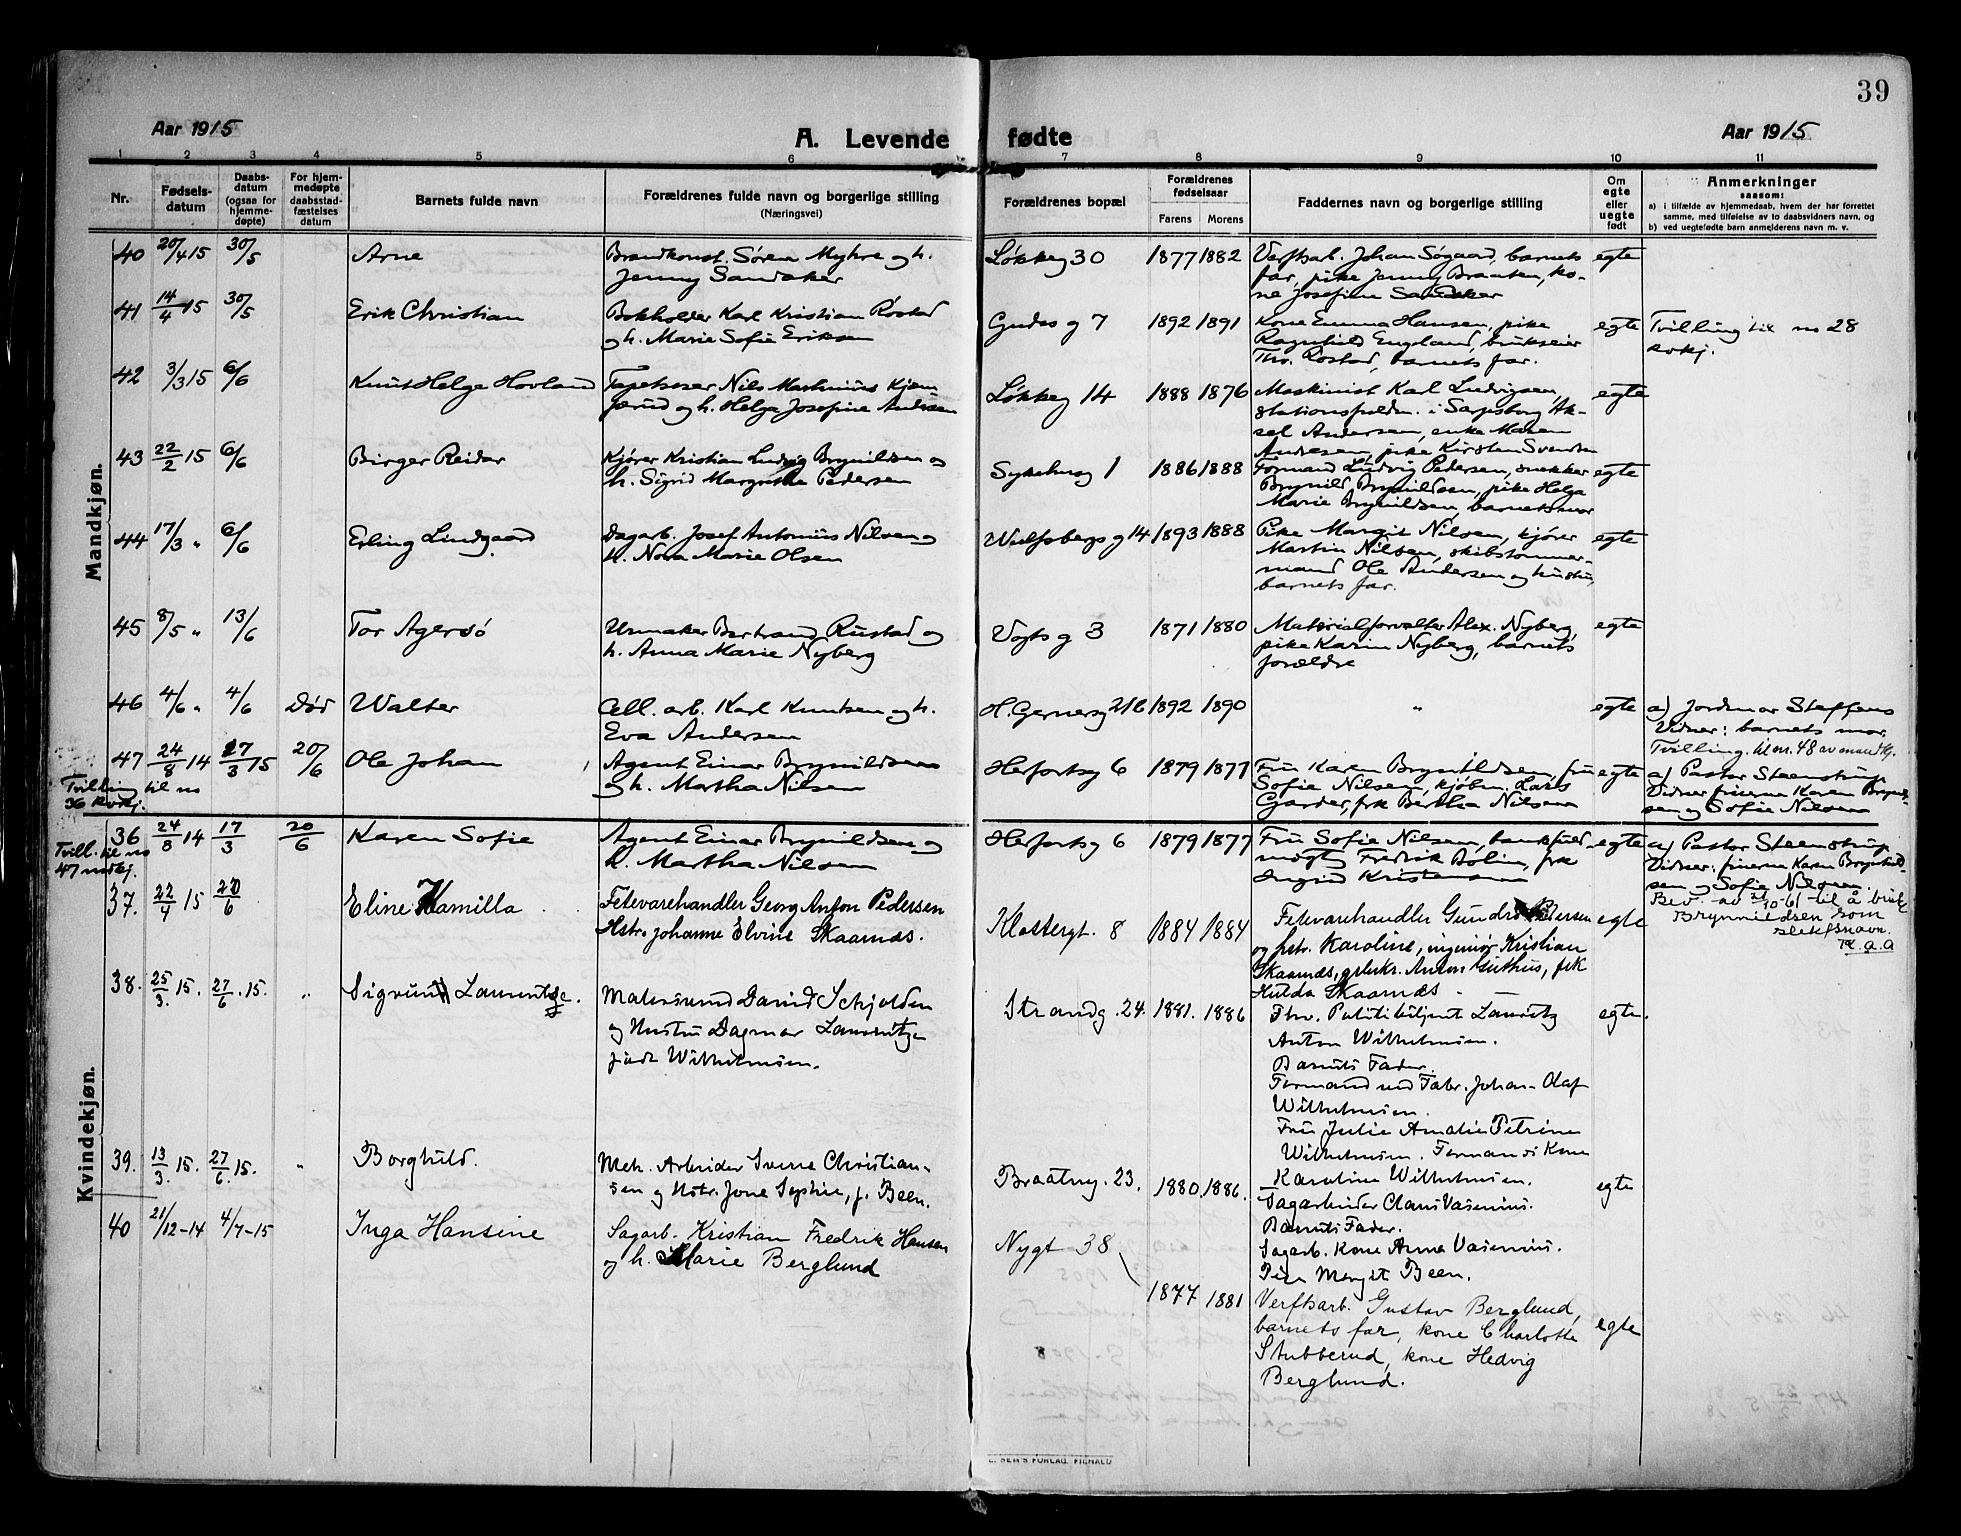 39
Aar 1915
A. Levende fødte
Aar 1915
1 2 3 4 5 6 7 8 9 10 11
Nr.
Fødsels-
datum
Daabs-
datum
(ogsaa for
hjemme-
døpte)
For hjem-
medøpte
daabsstad-
fæstelses
datum
Barnets fulde navn
Forældrenes fulde navn og borgerlige stilling
(Næringsvei)
Forældrenes bopæl
Forældrenes
fødselsaar
Farens Morens
Faddernes navn og borgerlige stilling
Om
egte
eller
uegte
født
Anmerkninger
saasom:
a) i tilfælde av hjemmedaab, hvem der har forrettet
samme, med tilføielse av to daabsvidners navn, og
b) ved uegtefødte barn anmelderens navn m. v.
Mandkjøn.
40 20/4 15 30/5 Arne
Brandkonst. Søren Myhre og h.
Jenny Sandaker
Løkkeg 30 1877 1882
Verftsarb. Johan Søgaard, barnets
far, pike Jenny Braaten, ko-
ne Josefine Sandaker
egte
41 14/4 15 30/5 Erik Christian
Bokholder Karl Kristian Rostad
og h. Marie Sofie Eriksen
Gydes g 7 1892 1891
Kone Emma Hansen, pike
Ragnhild Engeland, brukseier
Tho. Rostad, barnets far.
egte
Tvilling til no 28
kvkj.
42 3/3 15 6/6 Knut Helge Hovland
Tapetserer Nils Martinius Kjem-
jerud og h. Helga Josefine Andersen
Løkkeg 14 1888 1876
Maskinist Karl Ludvigsen,
stationsfuldm. i Sarpsborg Ak-
sel Andersen, enke Maren
Andersen, pike Kirsten Svendsen
egte
43 22/2 15 6/6 Birger Reidar
Kjører Kristian Ludvig Brynildsen og
h. Sigrid Margrethe Pedersen
Sykehusg 1 1886 1888
Formand Ludvig Pedersen, snekker
Brynild Brynildsen, pike Helga
Marie Brynildsen, barnets mor
egte
44 17/3 " 6/6 Erling Lindgaard
Dagarb. Josef Antonius Nilsen og
h. Nora Marie Olsen
Wulfsbergs g 14 1893 1888
Pike Margit Nilsen, kjører
Martin Nilsen, skibstømmer-
mand Ole Andersen og hustru,
barnets far.
egte
45 8/5 " 13/6 Tor Agersø
Urmaker Bertrand Rustad og
h. Anna Marie Nyberg
Vogts g 3 1871 1880
Materialforvalter Alex. Nyberg,
pike Karin Nyberg, barnets
forældre
egte
46 4/6 " 4/6 Død Walter
Cell. arb. Karl Knutsen og h.
Eva Andersen
H. Gerners g 21b 1892 1890
" egte
a) Jordmor Steffens
Vidner: barnets mor
Tvilling til nr. 48 av mandkj.
47 24/8 14 27/3 15 20/6 Ole Johan
Tvilling til no
36 kvkj.
Agent Einar Brynildsen
og h. Martha Nilsen
Hefortsg 6 1879 1877
Fru Karen Brynildsen, fru
Sofie Nilsen, kjøbm. Lars
Garder, frk Bertha Nilsen
egte
a) Pastor Steenstrup
Vidner: fruerne Karen Brynild-
sen og Sofie Nilsen
Kvindekjøn.
36 24/8 14 17/3 20/6 Karen Sofie
Tvill. til no
47 mdkj.
Agent Einar Brynildsen og
h. Martha Nilsen
Hefortsg 6 1879 1877
Fru Sofie Nilsen, bankfuld-
mægt Fredrik Bolin, frk
Ingrid Kristensen
egte
a) Pastor Steenstrup
Vidner: fruerne Karen Brynild-
sen og Sofie Nilsen.
Bev. av 10-61 til å bruke
Brynnildsen som
slektsnavn.
37. 22/4 15 20/6 Eline Kamilla
Fetevarehandler Georg Anton Pedersen
Hstr. Johanne Elvine Skaarnæs.
Klostergt. 8 1884 1884
Fetevarehandler Gunds Pedersen
og hstr. Karoline, ingeniør Kristian
Skaarnæs, Anton Guthus, frk
Hulda Skaarnæs
egte
38. 25/3. 15. 27/6. 15. " Sigrun Laurentze
Malersvend David Schjolden
og Hustru Dagmar Laurentze
født Wilhelmsen.
Strandg. 24. 1881. 1886
Fhv. Politibetjent Lauritz
Anton Wilhelmsen.
Barnets Fader.
Formand ved Fabr. Johan Olaf
Wilhelmsen.
Fru Julie Amalie Petrine
Wilhelmsen. Formands Kone
Karoline Wilhelmsen.
egte.
39. 13/3. 15. 27/6. 15. " Borghild.
Mek. Arbeider Svene Christian-
sen og Hstr. Jone Sophie, f. Been.
Braatng. 23. 1880. 1886.
Sagarbeider Claus Vasenius.
Barnets Fader.
Sagarb. Kone Anna Vasenius.
Margit Been.
egte
40 21/12-14 4/7-15 Inga Hansine
Sagarb. Kristian Fredrik Hansen
og h. Marie Berglund
Nygt 38 1877 1881
Verftsarb. Gustav Berglund,
barnets far, kone Charlotte
Stubberud, kone Hedvig
Berglund.
egte